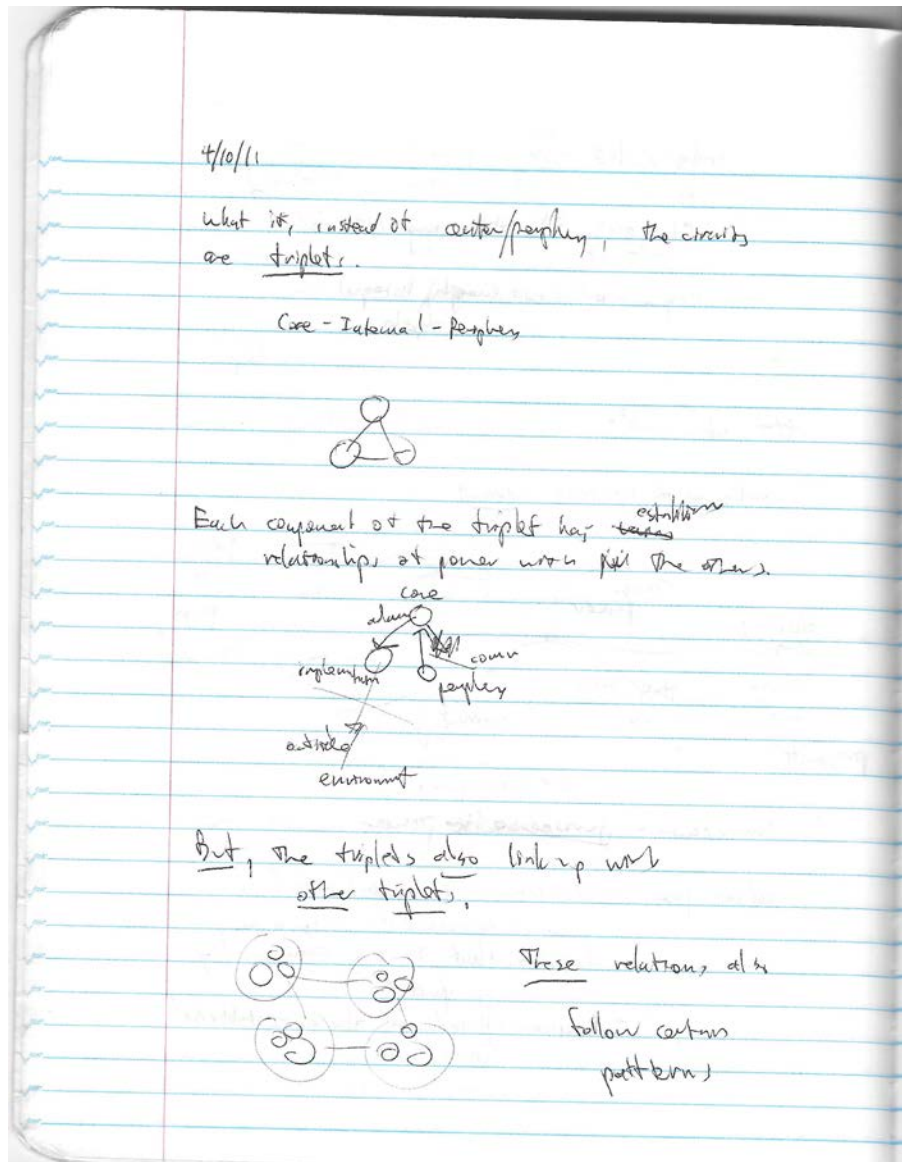 4/10/11
what if, instead of center/periphery, the circuits
are triplets.
Core - Internal - Periphery
Each component of the triplet has establish
relationships of power with the others.
core
comm
periphery
outside
environment
But, the triplets also link up with
other triplets.
These relations also
follow certain
patterns